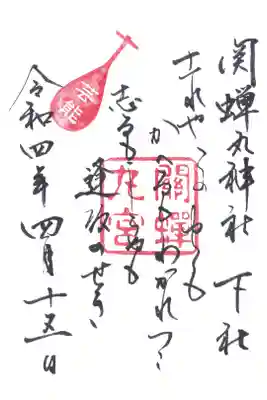 関蝉丸神社 下社
これやこの ゆくも
かへるも わかれつゝ
志るも しらぬも
逢坂のせき
令和四年 四月 十五日
關蟬
丸宮